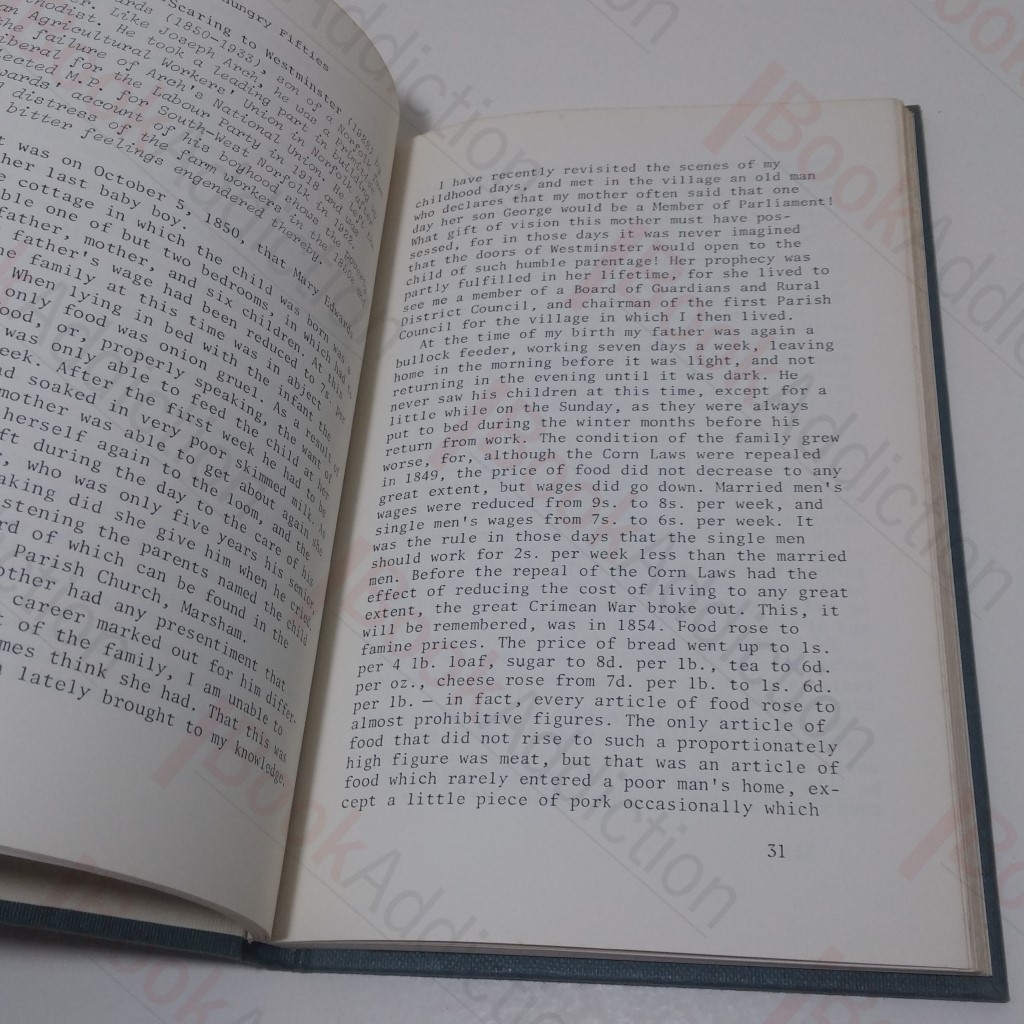 Scaring to Westminster
Hungry Fifties
ards (1850-1933), son of a
thodist. Like Joseph Arch, he was a Norfolk
He took a leading part in
an Agricultural Workers' Union in Norfolk after
the failure of Arch's National Union. He
iberal for the Labour Party in 1918 and was
lected M.P. for South-West Norfolk
wards' account of his boyhood shows the
distress of the farm workers in the
bitter feelings engendered thereby.
t was on October 5, 1850, that Mary Edwards
her last baby boy.
e cottage in which the child was born was a
ble one of but two bedrooms, in which had to
father, mother, and six children. At this
father's wage had been reduced to
he family at this time was in abject
When lying in bed with the infant the
only food was onion gruel. As a result of
ood, or, properly speaking, the want of
was only able to feed the child at her
eek. After the first week he had to be
d soaked in very poor skimmed milk. As
mother was able to get about again she
herself again to the loom, and the
ft during the day to the care of his
, who was only five years his senior,
aking did she give him when he cried.
stening the parents named the child
rd of which can be found in the
Parish Church, Marsham.
other had any presentiment that
career marked out for him differ-
t of the family, I am unable to
mes think she had. That this was
lately brought to my knowledge.
I have recently revisited the scenes of my
childhood days, and met in the village an old man
who declares that my mother often said that one
day her son George would be a Member of Parliament!
What gift of vision this mother must have pos-
sessed, for in those days it was never imagined
that the doors of Westminster would open to the
child of such humble parentage! Her prophecy was
partly fulfilled in her lifetime, for she lived to
see me a member of a Board of Guardians and Rural
District Council, and chairman of the first Parish
Council for the village in which I then lived.
At the time of my birth my father was again a
bullock feeder, working seven days a week, leaving
home in the morning before it was light, and not
returning in the evening until it was dark. He
never saw his children at this time, except for a
little while on the Sunday, as they were always
put to bed during the winter months before his
return from work. The condition of the family grew
worse, for, although the Corn Laws were repealed
in 1849, the price of food did not decrease to any
great extent, but wages did go down. Married men's
wages were reduced from 9s. to 8s. per week, and
single men's wages from 7s. to 6s. per week. It
was the rule in those days that the single men
should work for 2s. per week less than the married
men. Before the repeal of the Corn Laws had the
effect of reducing the cost of living to any great
extent, the great Crimean War broke out. This, it
will be remembered, was in 1854. Food rose to
famine prices. The price of bread went up to 1s.
per 4 lb. loaf, sugar to 8d. per lb., tea to 6d.
per oz., cheese rose from 7d. per lb. to 1s. 6d.
per lb. — in fact, every article of food rose to
almost prohibitive figures. The only article of
food that did not rise to such a proportionately
high figure was meat, but that was an article of
food which rarely entered a poor man's home, ex-
cept a little piece of pork occasionally which
31